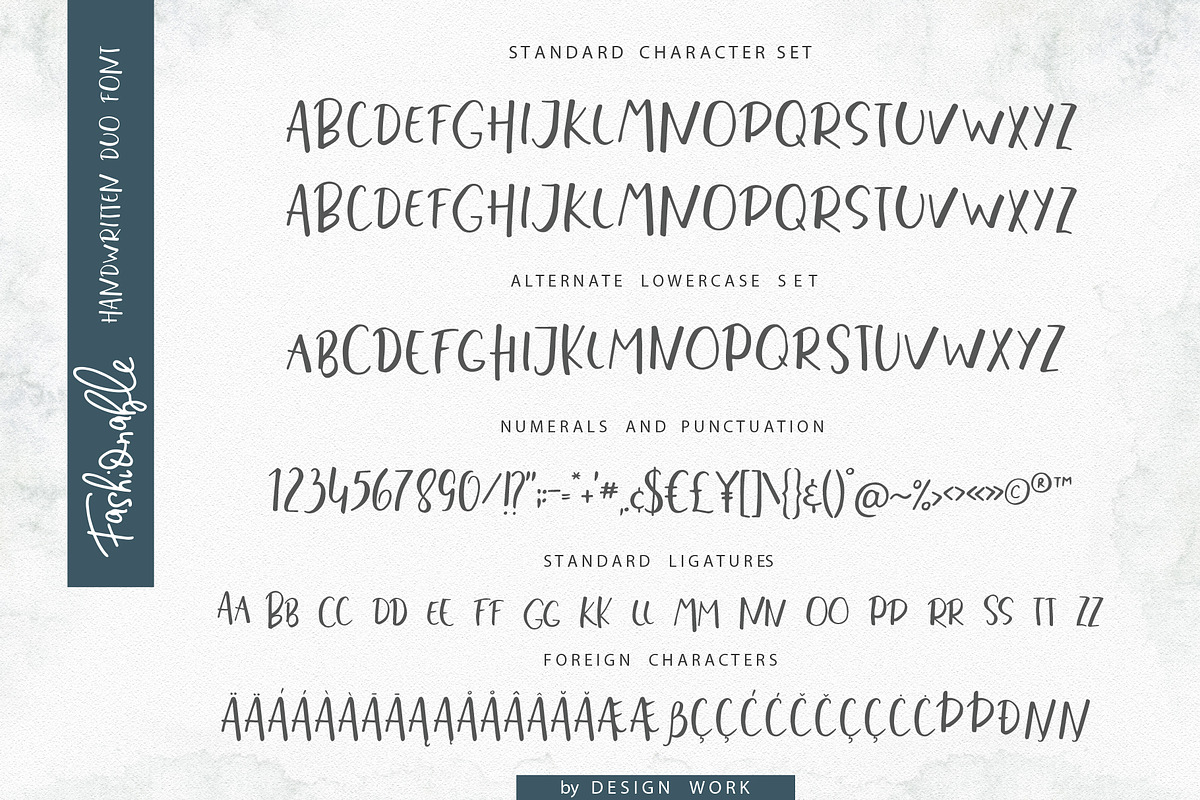 Fashionable HANDWRITTEN DUO FONT
STANDARD CHARACTER SET
ABCDEFGHIJKLMNOPQRSTUVWXYZ
ABCDEFGHIJKLMNOPQRSTUVWXYZ
ALTERNATE LOWERCASE SET
ABCDEFGHIJKLMNOPQRSTUVWXYZ
NUMERALS AND PUNCTUATION
1234567890/!?";:-=*+'#,.¢$€£¥[]\{}&()°@~%><>«»©®™
STANDARD LIGATURES
AA BB CC DD EE FF GG KK LL MM NN OO PP RR SS TT ZZ
FOREIGN CHARACTERS
ÄÄÁÁÀÀĀĀĄĄÅÅÂÂǍǍÆÆßÇÇĆĆČČÇÇĊĊÞÞÐNN
by DESIGN WORK